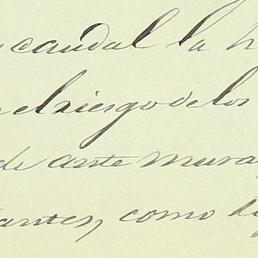 caudal la h
el riesgo de los
de ante mura
tantes, como di